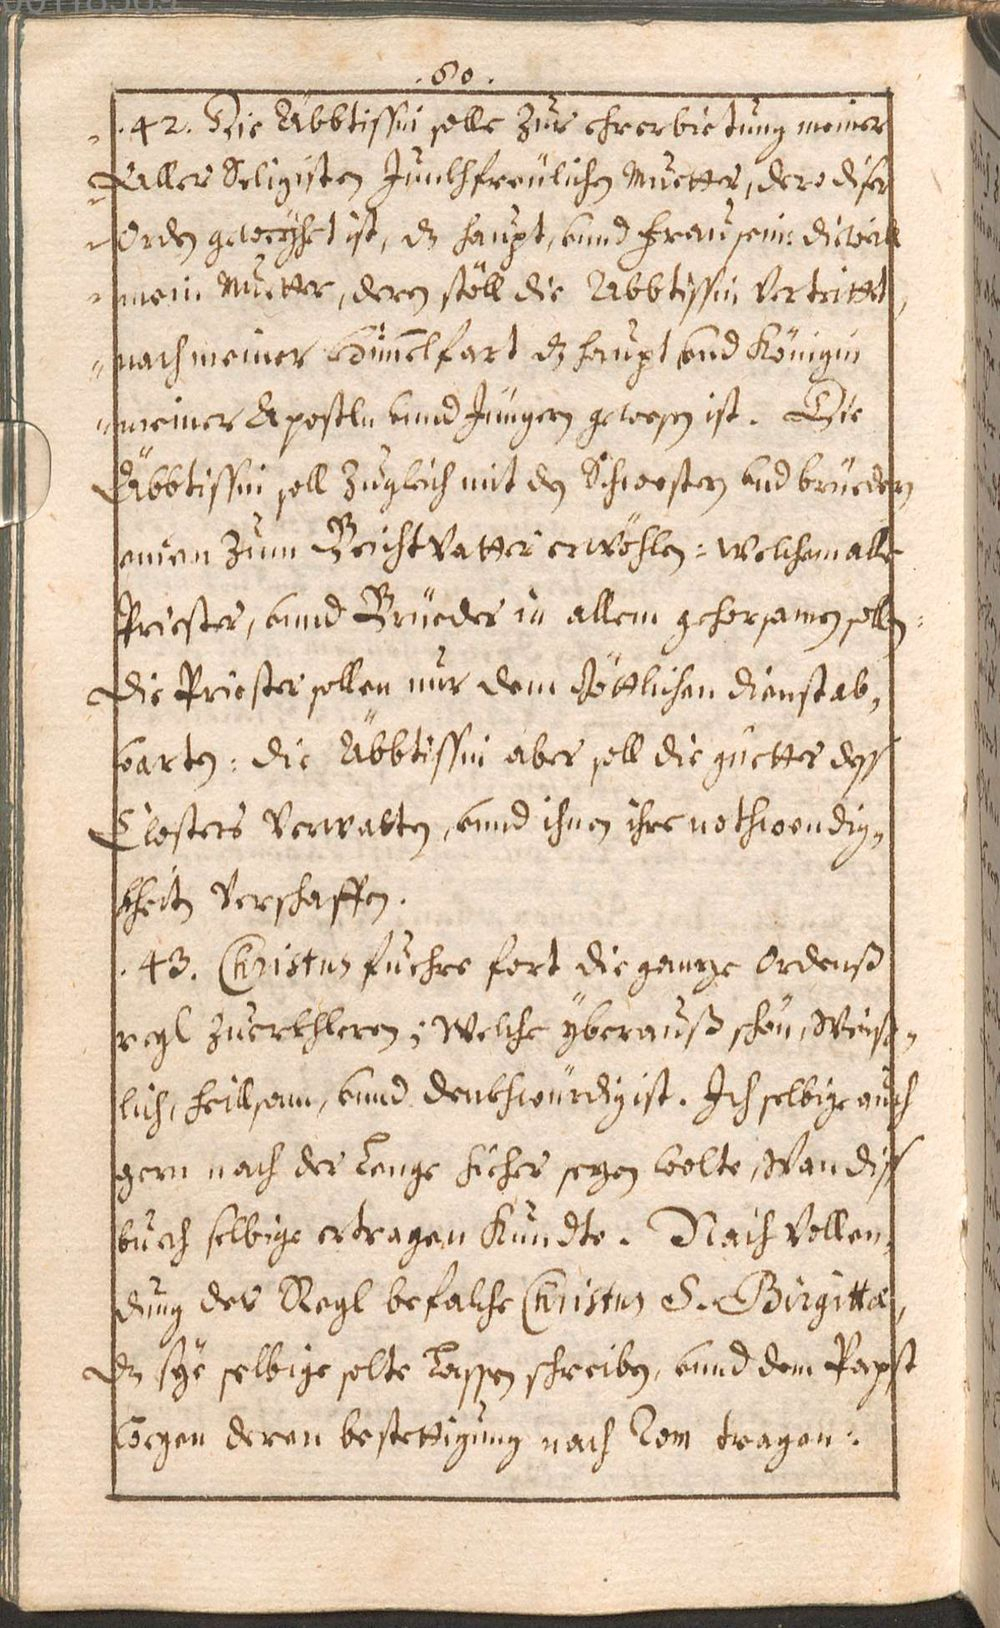 .60.
.42. Die Äbbtissin solle Zur ehrerbietung meiner
Aller Seligisten Junckhfreülichen Muetter, dero diser
Orden geweÿhet ist, dz haupt, vnnd Frau sein: dieweil
mein Muetter, deren ställ die Abbtissin Vertrittet,
nach meiner Himelfart dz haupt vnd Königin
meiner Apostln vnnd Jüngern gewesen ist. Die
Äbbtissin soll Zugleich mit den Schwestern vnd brüedern
einen Zum Beichtvatter erwöhlen: welchem alle
Priester, vnnd Brüeder in allem gehorsamen sollen:
die Priester sollen nur dem Göttlichen dienst ab„
warten: die Äbbtissin aber soll die güetter dess
Closters Verwalten, vnnd ihnen ihre nothwendig„
kheiten Verschaffen.
.43. Christus fuehre fort die gantze Ordenß
regl Zuerkhleren; Welche yberauß schön, Weiß„
lich, heillsam, vnnd denkhwürdig ist. Ich selbige auch
gern nach der Lenge hieher sezen wolte, Wan diss
buech selbige ertragen Kundte. Nach Vollen„
dung der Regl befalche Christus S. Birgittæ,
dz sye selbige solte Lassen schreiben, vnnd dem Papst
wegen deren bestettigung nach Rom tragen: